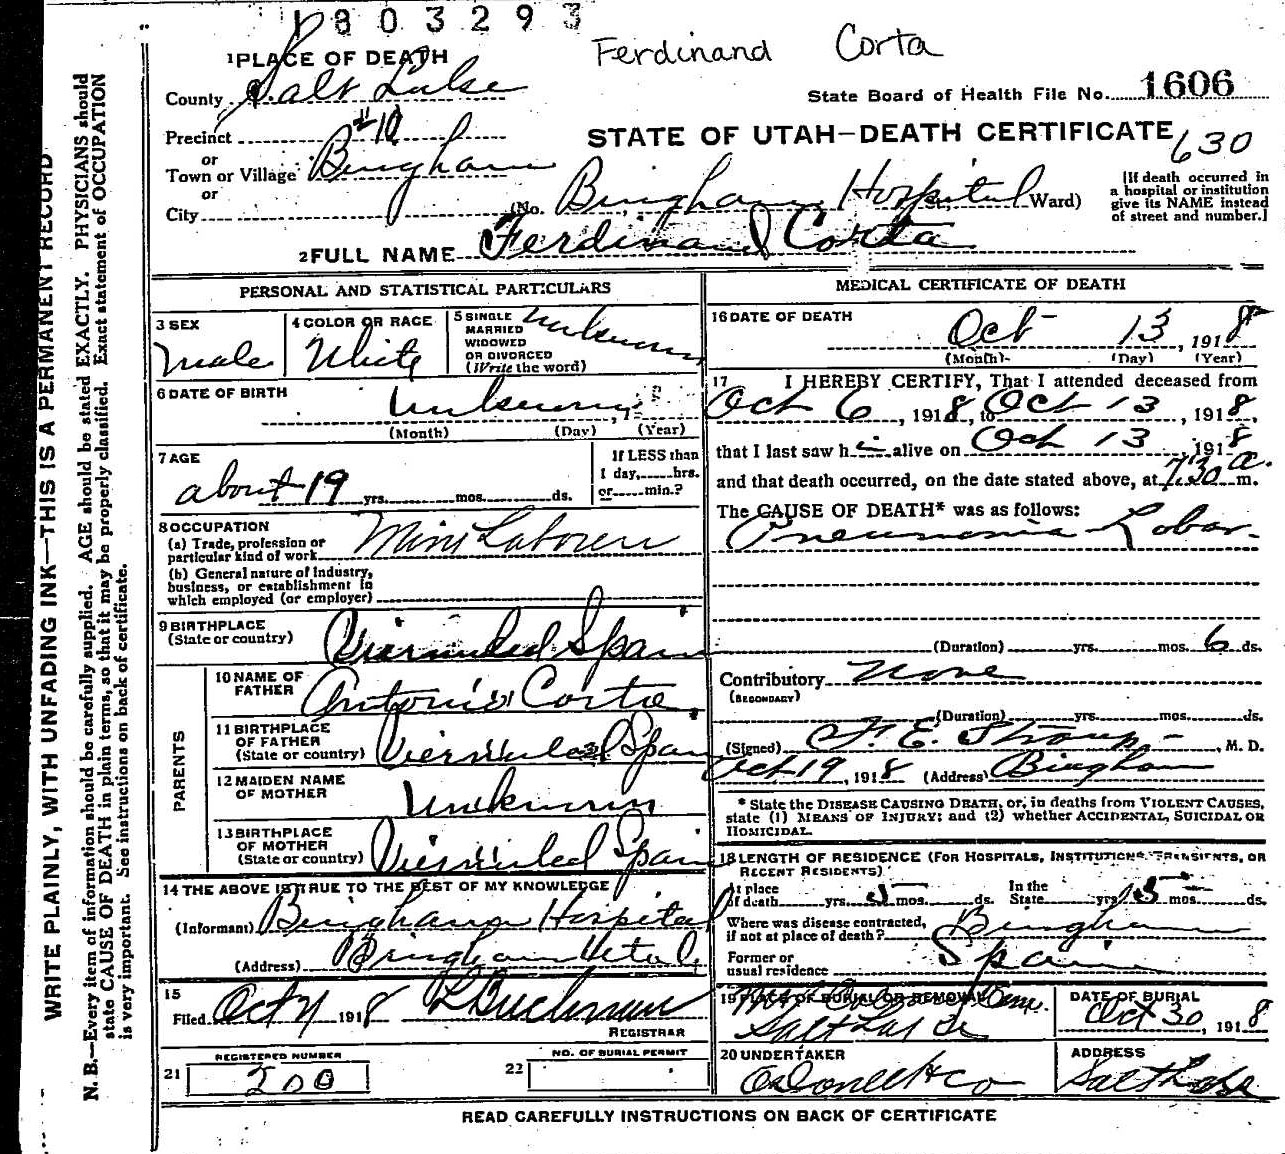 1803293
Ferdinand Corta
1 PLACE OF DEATH
County Salt Lake
State Board of Health File No. 1606
Precinct #10
STATE OF UTAH—DEATH CERTIFICATE
630
or
Town or Village Bingham
or
City
(No. Bingham Hospital St., Ward)
[If death occurred in
a hospital or institution
give its NAME instead
of street and number.]
2 FULL NAME Ferdinand Corta
PERSONAL AND STATISTICAL PARTICULARS
3 SEX
Male
4 COLOR OR RACE
White
5 SINGLE
MARRIED
WIDOWED
OR DIVORCED
(Write the word)
Unknown
6 DATE OF BIRTH
Unknown, 1
(Month) (Day) (Year)
7 AGE
about 19 yrs. mos. ds.
If LESS than
1 day, hrs.
or min.?
8 OCCUPATION
(a) Trade, profession or
particular kind of work Mine Laborer
(b) General nature of industry,
business, or establishment in
which employed (or employer)
9 BIRTHPLACE
(State or country) Spain
PARENTS
10 NAME OF
FATHER Antonio Corta
11 BIRTHPLACE
OF FATHER
(State or country) Spain
12 MAIDEN NAME
OF MOTHER Unknown
13 BIRTHPLACE
OF MOTHER
(State or country) Spain
14 THE ABOVE IS TRUE TO THE BEST OF MY KNOWLEDGE
(Informant) Bingham Hospital
(Address) Bingham Utah
15
Filed Oct 1918
REGISTRAR
REGISTERED NUMBER
21 200
NO. OF BURIAL PERMIT
22
MEDICAL CERTIFICATE OF DEATH
16 DATE OF DEATH
Oct 13, 1918
(Month) (Day) (Year)
17 I HEREBY CERTIFY, That I attended deceased from
Oct 6, 1918, to Oct 13, 1918,
that I last saw h im alive on Oct 13, 1918
and that death occurred, on the date stated above, at 7.30 a. m.
The CAUSE OF DEATH* was as follows:
Pneumonia Lobar.
(Duration) yrs. mos. 6 ds.
Contributory None
(SECONDARY)
(Duration) yrs. mos. ds.
(Signed) F. E. Straup, M. D.
Oct 19, 1918 (Address) Bingham
* State the DISEASE CAUSING DEATH, or, in deaths from VIOLENT CAUSES,
state (1) MEANS OF INJURY; and (2) whether ACCIDENTAL, SUICIDAL OR
HOMICIDAL.
18 LENGTH OF RESIDENCE (FOR HOSPITALS, INSTITUTIONS, TRANSIENTS, OR
RECENT RESIDENTS)
At place
of death yrs. 5 mos. ds.
In the
State yrs. 5 mos. ds.
Where was disease contracted,
if not at place of death? Bingham
Former or
usual residence Spain
19 PLACE OF BURIAL OR REMOVAL
Mt. Cem.
Salt Lake
DATE OF BURIAL
Oct 30, 1918
20 UNDERTAKER
O'Donnell & Co
ADDRESS
Salt Lake
READ CAREFULLY INSTRUCTIONS ON BACK OF CERTIFICATE
WRITE PLAINLY, WITH UNFADING INK—THIS IS A PERMANENT RECORD
N. B.—Every item of information should be carefully supplied. AGE should be stated EXACTLY. PHYSICIANS should
state CAUSE OF DEATH in plain terms, so that it may be properly classified. Exact statement of OCCUPATION
is very important. See instructions on back of certificate.